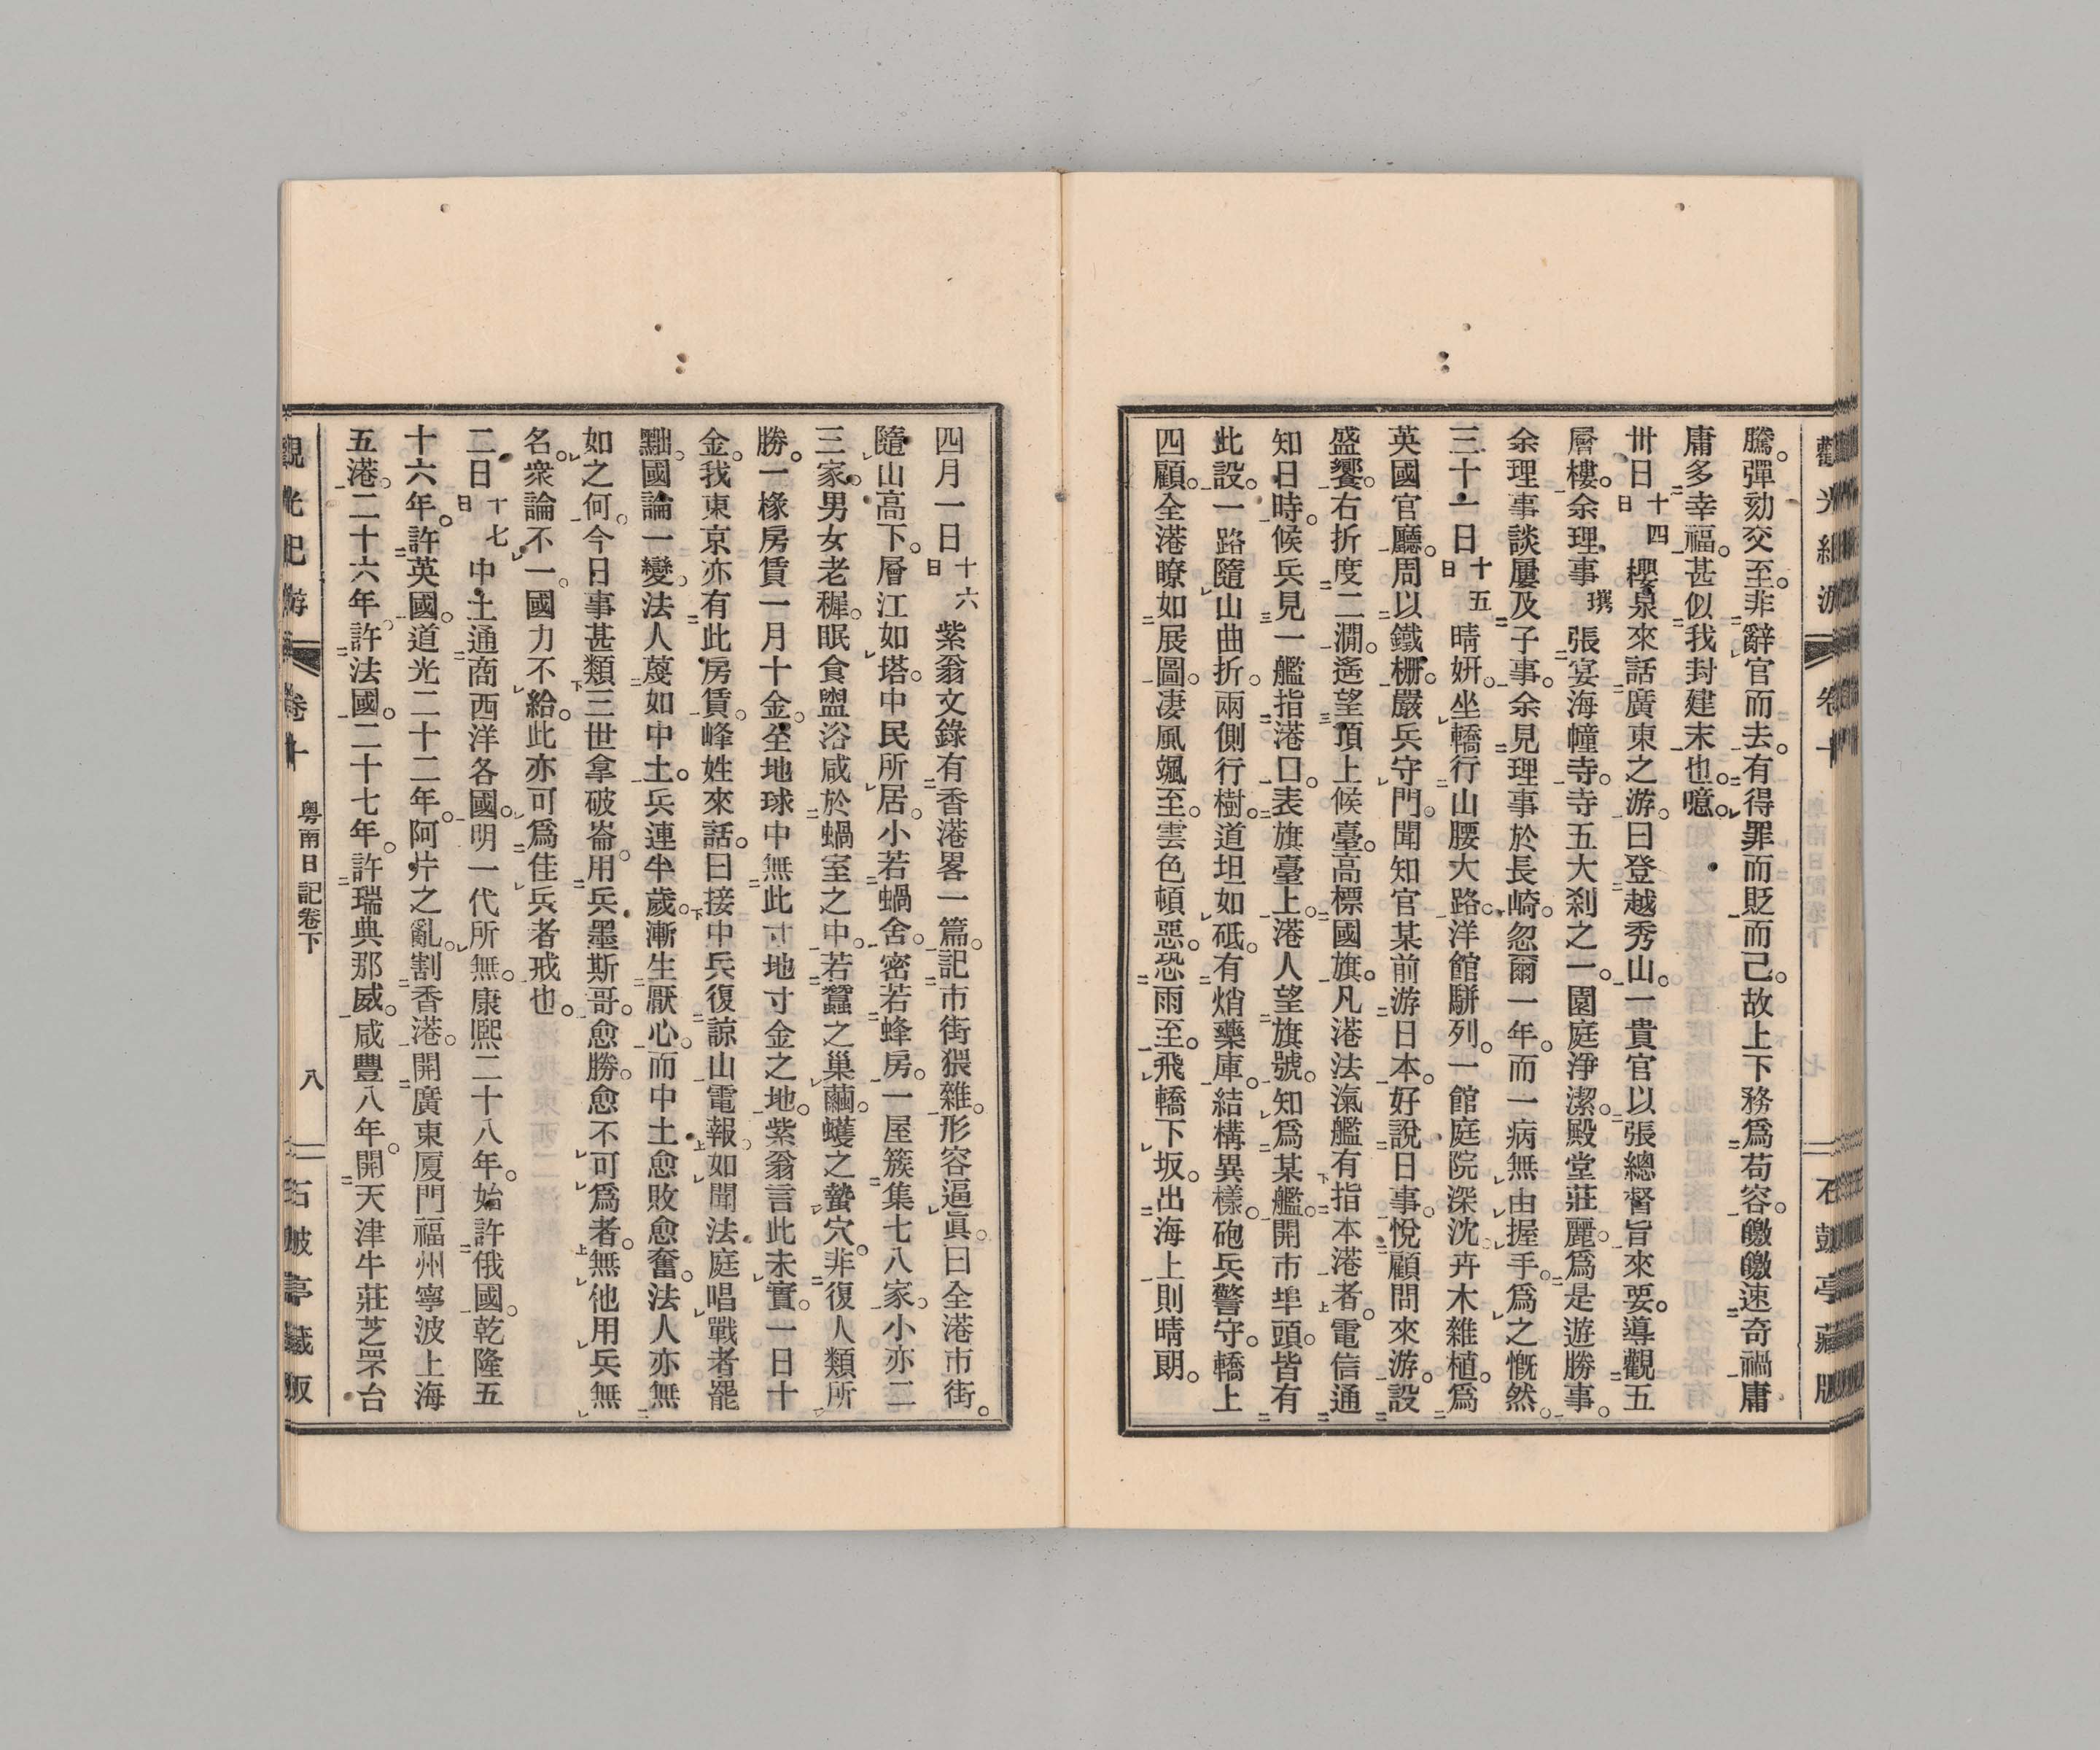 騰。彈劾交至。非辭官而去。有得罪而貶而已。故上下務爲苟容。皦皦速奇禍庸
庸多幸福。甚似我封建末也。噫。
卅日十四日櫻泉來話廣東之游。曰登越秀山。一貴官以張總督旨來要。導觀五
層樓。余理事㻞張宴海幢寺。寺五大刹之一。園庭淨潔。殿堂莊麗。爲是遊勝事。
余理事談屢及子事。余見理事於長崎。忽爾一年。而一病無由握手。爲之慨然。
三十一日十五日晴妍。坐轎行山腰大路。洋館駢列。一館庭院深沈。卉木雜植。爲
英國官廳。周以鐵柵。嚴兵守門。聞知官某前游日本。好說日事。悅顧問來游。設
盛饗。右折度二澗。遙望頂上候臺。高標國旗。凡港法滊艦有指本港者。電信通
知日時。候兵見一艦指港口。表旗臺上。港人望旗號。知爲某艦。開市埠頭。皆有
此設。一路隨山曲折。兩側行樹。道坦如砥。有焇藥庫。結構異樣。砲兵警守。轎上
四顧。全港瞭如展圖。凄風颯至。雲色頓惡。恐雨至。飛轎下坂。出海上則晴朗。
卷十
石鼓亭藏版
四月一日十六日紫翁文錄有香港畧一篇。記市街猥雜。形容逼眞。曰全港市街。
隨山高下。層江如塔。中民所居。小若蝸舍。密若蜂房。一屋簇集七八家。小亦二
三家。男女老穉。眠食盥浴咸於蝸室之中。若蠶之巢繭。蠖之蟄穴。非復人類所
勝。一椽房賃一月十金。全地球中無此寸地寸金之地。紫翁言此未實。一日十
金。我東京亦有此房賃。峰姓來話。曰接中兵復諒山電報。如聞法庭唱戰者罷
黜。國論一變。法人蔑如中土。兵連半歲。漸生厭心。而中土愈敗愈奮。法人亦無
如之何。今日事甚類三世拿破崙用兵墨斯哥。愈勝。愈不可爲者。無他用兵無
名。衆論不一。國力不給。此亦可爲佳兵者戒也。
二日十七日中土通商西洋各國。明一代所無。康熙二十八年。始許俄國。乾隆五
十六年。許英國。道光二十二年。阿片之亂。割香港。開廣東厦門福州寧波上海
五港。二十六年。許法國。二十七年。許瑞典那威。咸豐八年。開天津牛莊芝罘台
觀光紀游 卷十 粤南日記卷下 八 石鼓亭藏版